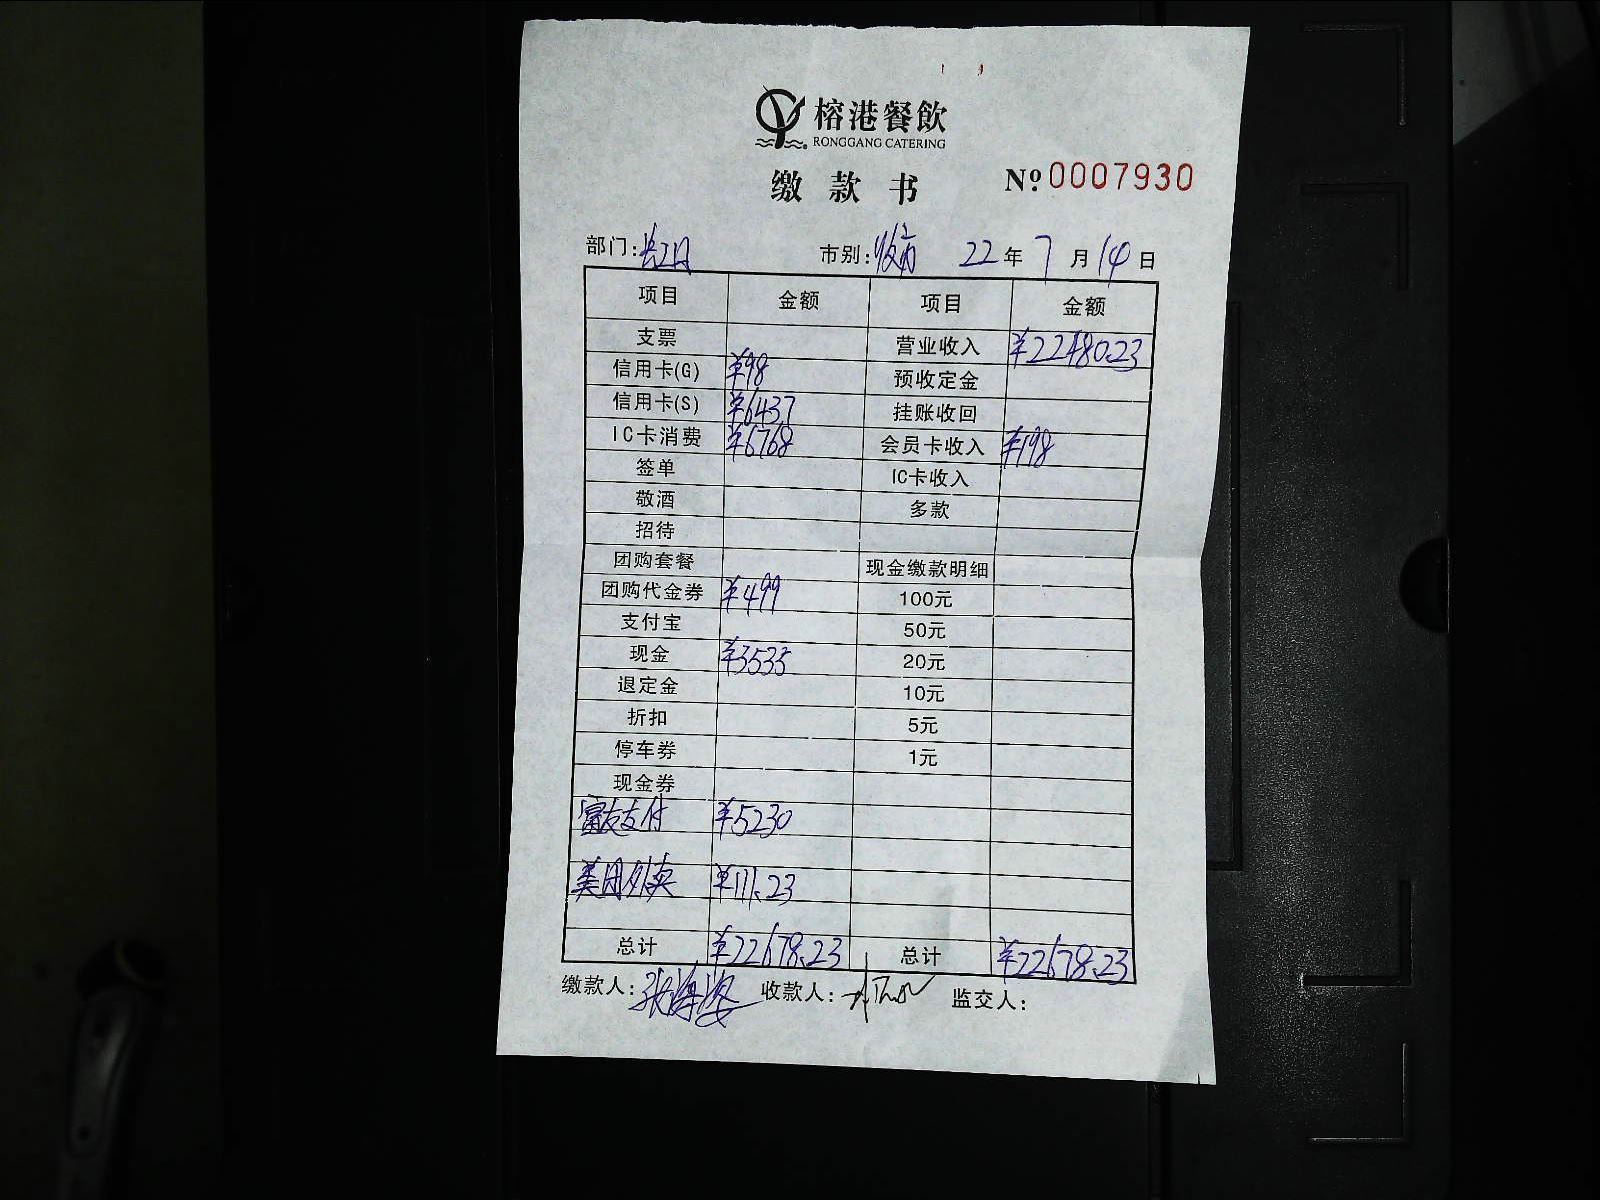 榕港餐飲
RONGGANG CATERING
缴款书 №0007930
部门: 市别:收市 22年7月14日
项目 金额 项目 金额
支票 营业收入 ¥22480.23
信用卡(G) ¥98 预收定金
信用卡(S) ¥6437 挂账收回
IC卡消费 ¥6768 会员卡收入 ¥198
签单 IC卡收入
敬酒 多款
招待
团购套餐 现金缴款明细
团购代金券 ¥499 100元
支付宝 50元
现金 ¥3535 20元
退定金 10元
折扣 5元
停车券 1元
现金券
富友支付 ¥5230
美团外卖 ¥111.23
总计 ¥22678.23 总计 ¥22678.23
缴款人: 收款人: 监交人: